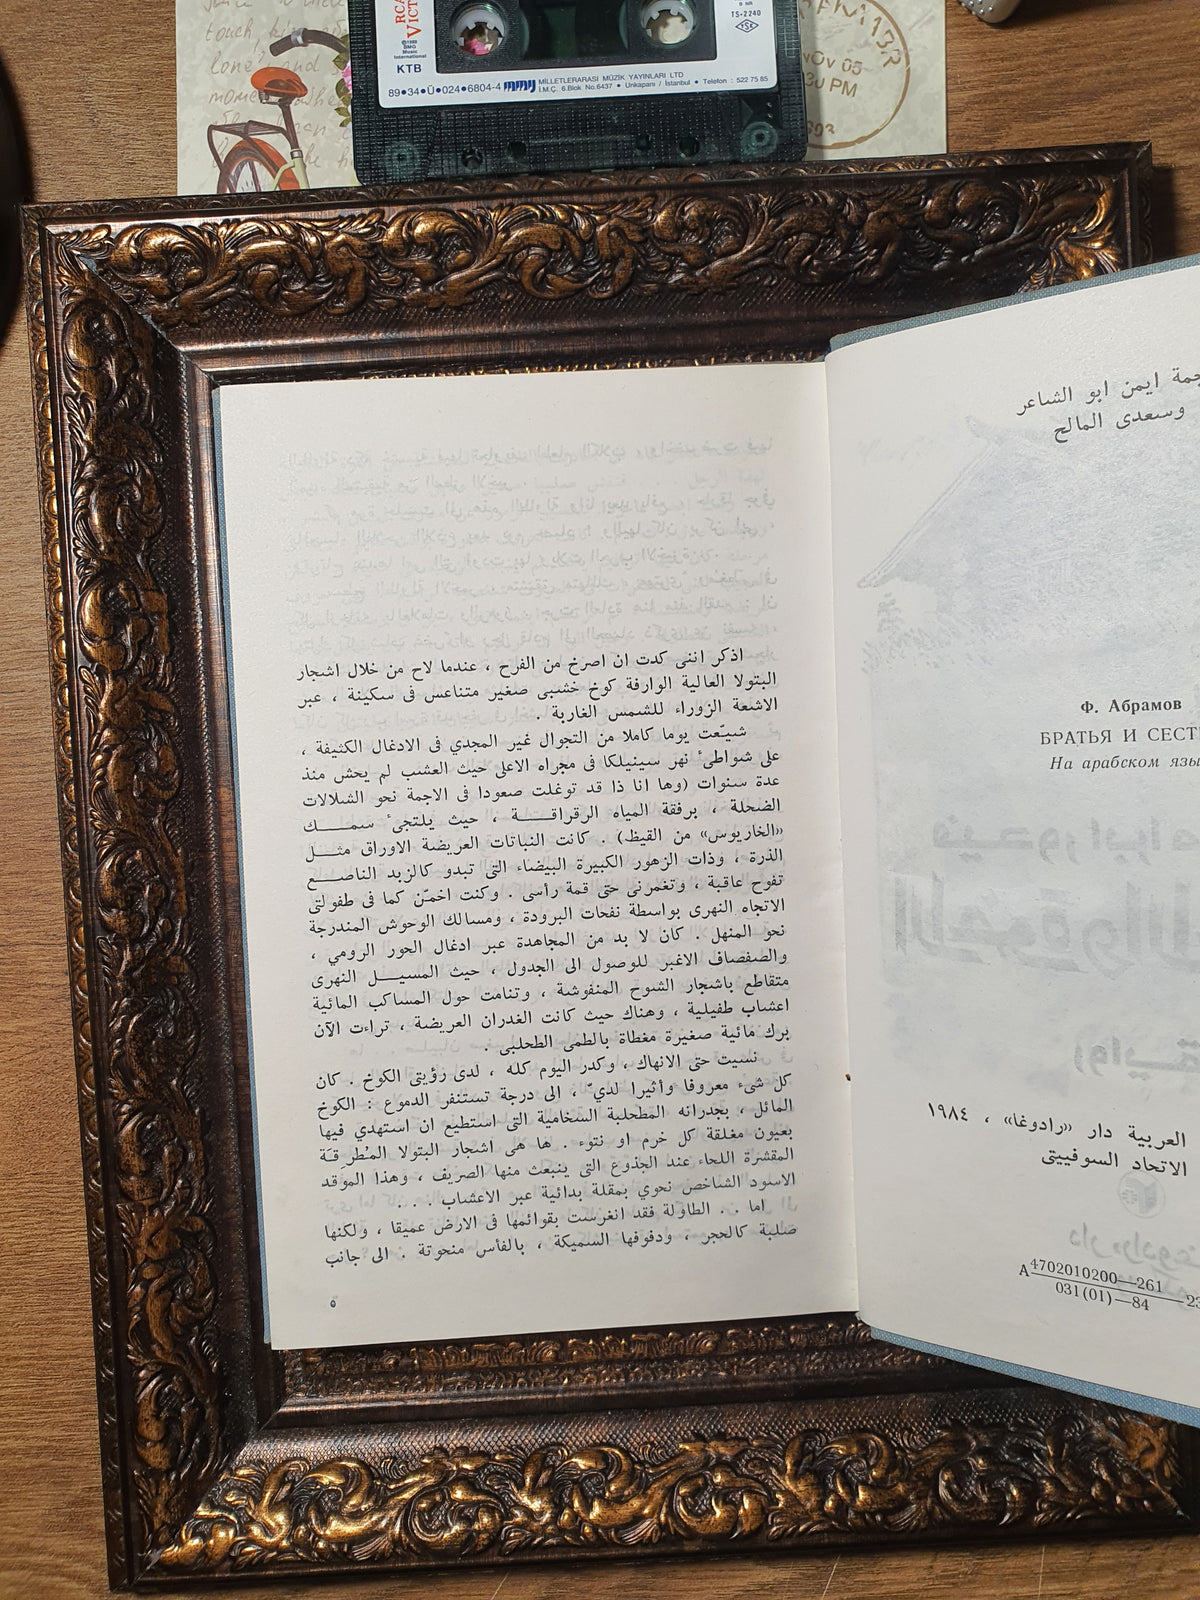 RCA
VICT
©1989
BMG
Music
International
KTB
TS-2240
TSE
89•34•Ü•024•6804-4
MİLLETLERARASI MÜZİK YAYINLARI LTD
İ.M.Ç. 6.Blok No.6437 • Unkapanı / İstanbul • Telefon : 522 75 85
NOV 05
30 PM
جمة ايمن ابو الشاعر
وسعدى المالح
Ф. Абрамов
БРАТЬЯ И СЕСТ
На арабском язы
العربية دار «رادوغا» ، ١٩٨٤
الاتحاد السوفييتى
А 4702010200—261
031(01)—84
اذكر اننى كدت ان اصرخ من الفرح ، عندما لاح من خلال اشجار
البتولا العالية الوارفة كوخ خشبى صغير متناعس فى سكينة ، عبر
الاشعة الزوراء للشمس الغاربة .
شيّعت يوما كاملا من التجوال غير المجدي فى الادغال الكثيفة ،
على شواطىٔ نهر سينيلكا فى مجراه الاعلى حيث العشب لم يحش منذ
عدة سنوات (وها انا ذا قد توغلت صعودا فى الاجمة نحو الشلالات
الضحلة ، برفقة المياه الرقراقـــــة ، حيث يلتجىٔ سمـــك
«الخاريوس» من القيظ) . كانت النباتات العريضة الاوراق مثـــل
الذرة ، وذات الزهور الكبيرة البيضاء التى تبدو كالزبد الناصـــع
تفوح عاقبة ، وتغمرنى حتى قمة رأسى . وكنت اخمّن كما فى طفولتى
الاتجاه النهرى بواسطة نفحات البرودة ، ومسالك الوحوش المندرجة
نحو المنهل . كان لا بد من المجاهدة عبر ادغال الحور الرومي ،
والصفصاف الاغبر للوصول الى الجدول ، حيث المسيـــل النهرى
متقاطع باشجار الشوح المنفوشة ، وتنامت حول المساكب المائية
اعشاب طفيلية ، وهناك حيث كانت الغدران العريضة ، تراءت الآن
برك مائية صغيرة مغطاة بالطمى الطحلبى .
نسيت حتى الانهاك ، وكدر اليوم كله ، لدى رؤيتى الكوخ . كان
كل شىء معروفا وأثيرا لديّ ، الى درجة تستنفر الدموع : الكوخ
المائل ، بجدرانه المطحلبة السخامية التى استطيع ان استهدي فيها
بعيون مغلقة كل خرم او نتوء . ها هى اشجار البتولا المُطرِقَة
المقشرة اللحاء عند الجذوع التى ينبعث منها الصريف ، وهذا الموقد
الاسود الشاخص نحوي بمقلة بدائية عبر الاعشاب . . .
اما . . الطاولة فقد انغرست بقوائمها فى الارض عميقا ، ولكنها
صلبة كالحجر ، ودفوفها السميكة ، بالفأس منحوتة . الى جانب
٥